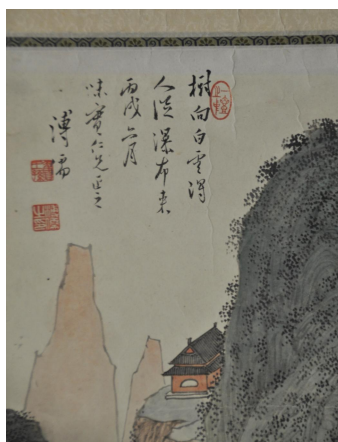 樹向白雲濕
人從瀑布來
丙戌六月
味賓仁兄正之
溥儒